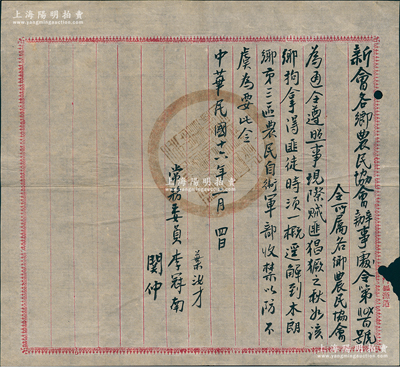 上海陽明拍賣
新會各鄉農民協會辦事處令第 號
令所屬各鄉農民協會
為通令遵照事現際賊匪猖獗之秋如該
鄉拘拿得匪徒時須一概逕解到木朗
鄉第三區農民自衛軍部收禁以防不
虞為要此令
中華民國十六年 月 四日
常務委員
葉汝才
李冠南
關仲
上海陽明拍賣